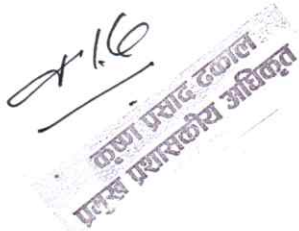 कृष्ण प्रसाद ढकाल
प्रमुख प्रशासकीय अधिकृत